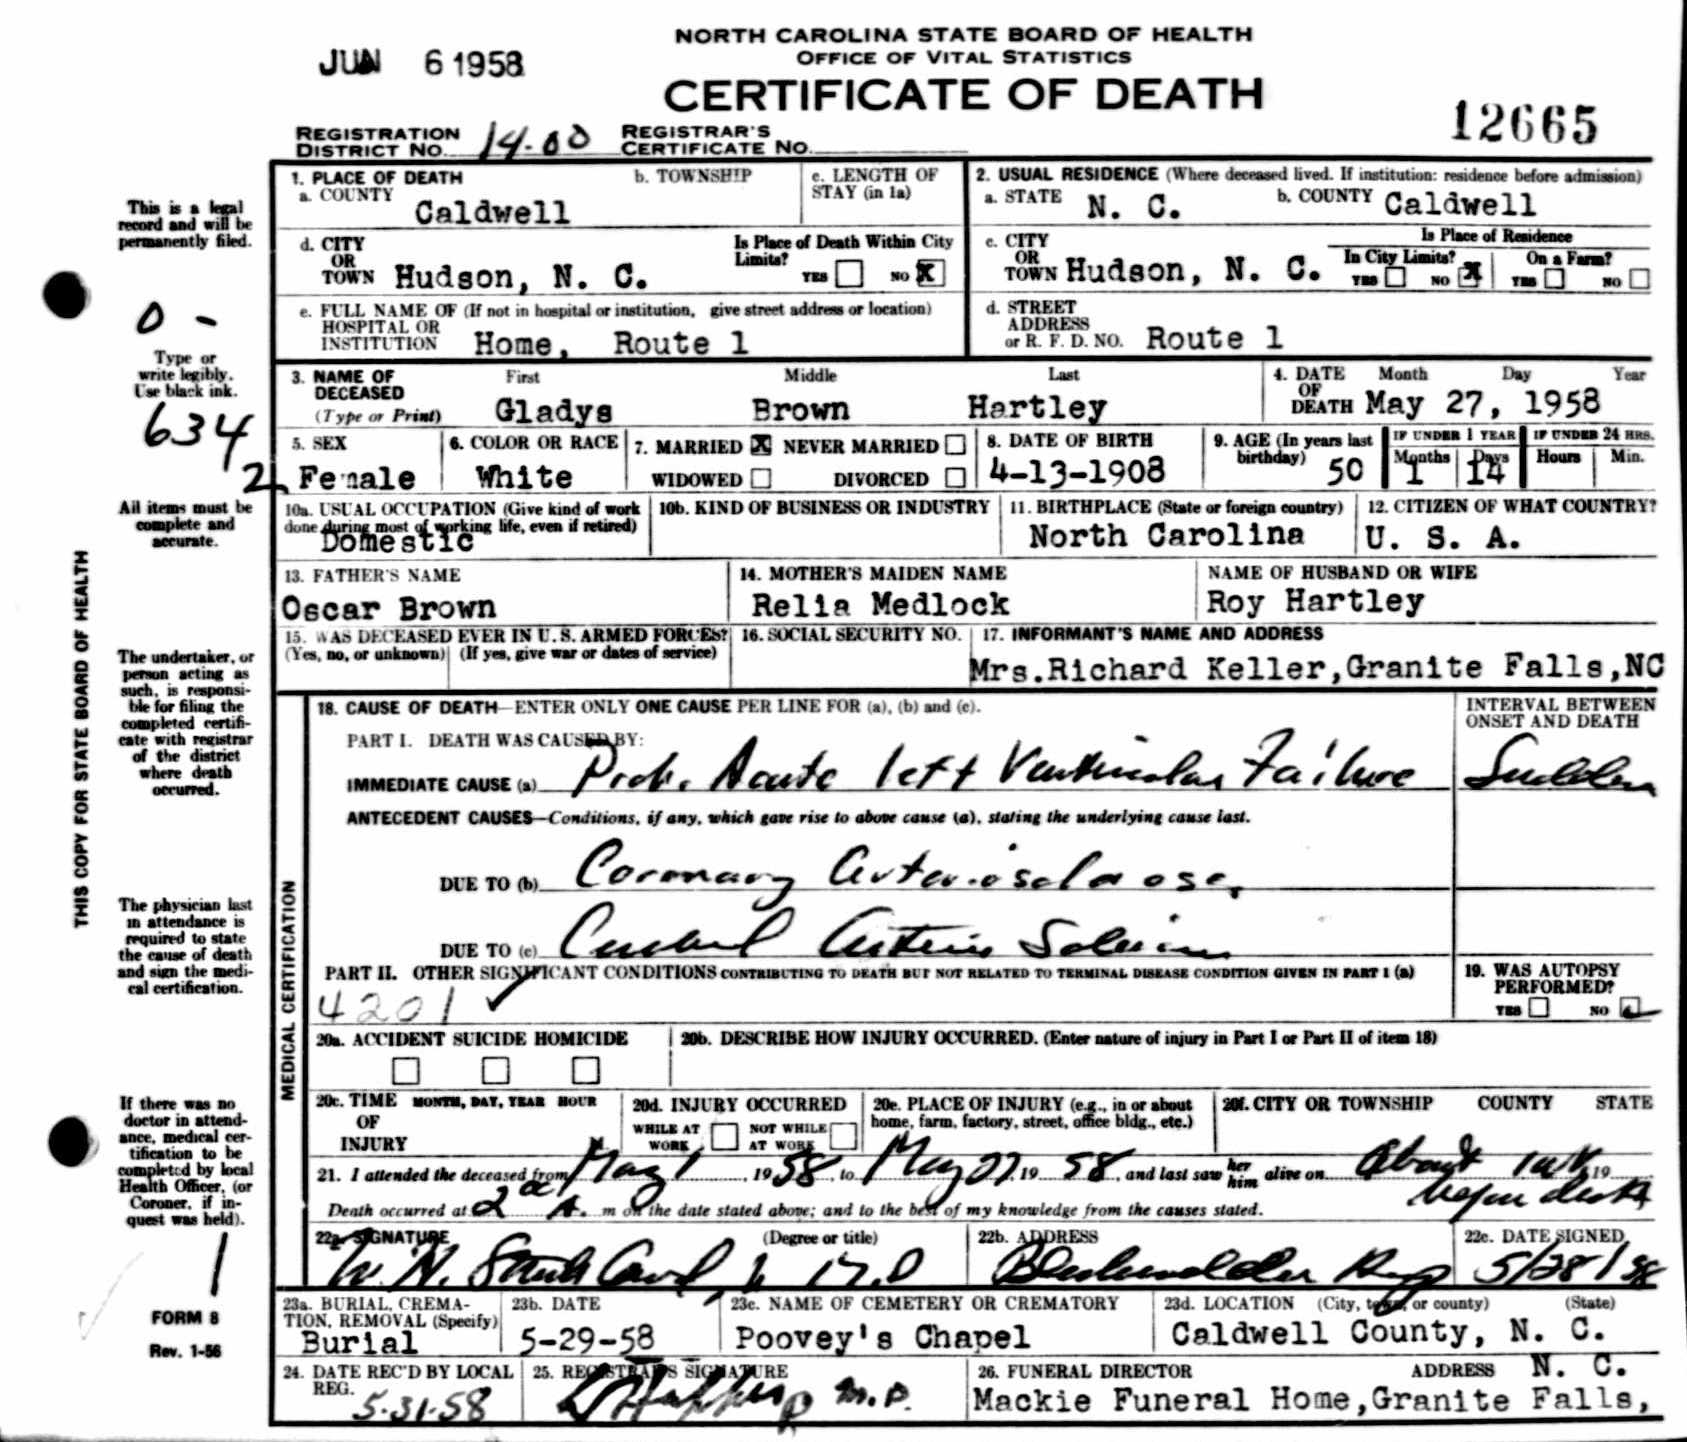 NORTH CAROLINA STATE BOARD OF HEALTH
OFFICE OF VITAL STATISTICS
CERTIFICATE OF DEATH
JUN 6 1958
12665
REGISTRATION DISTRICT NO. 14-00 REGISTRAR'S CERTIFICATE NO.
This is a legal record and will be permanently filed.
1. PLACE OF DEATH
a. COUNTY Caldwell
b. TOWNSHIP
c. LENGTH OF STAY (in 1a)
2. USUAL RESIDENCE (Where deceased lived. If institution: residence before admission)
a. STATE N. C. b. COUNTY Caldwell
d. CITY OR TOWN Hudson, N. C.
Is Place of Death Within City Limits? YES NO X
c. CITY OR TOWN Hudson, N. C.
Is Place of Residence
In City Limits? YES NO X
On a Farm? YES NO
e. FULL NAME OF (If not in hospital or institution, give street address or location)
HOSPITAL OR INSTITUTION Home, Route 1
d. STREET ADDRESS or R. F. D. NO. Route 1
0 -
Type or write legibly. Use black ink.
634
2
3. NAME OF DECEASED (Type or Print)
First Middle Last
Gladys Brown Hartley
4. DATE OF DEATH Month Day Year
May 27, 1958
5. SEX Female
6. COLOR OR RACE White
7. MARRIED X NEVER MARRIED
WIDOWED DIVORCED
8. DATE OF BIRTH 4-13-1908
9. AGE (In years last birthday) 50
IF UNDER 1 YEAR Months 1 Days 14
IF UNDER 24 HRS. Hours Min.
All items must be complete and accurate.
10a. USUAL OCCUPATION (Give kind of work done during most of working life, even if retired)
Domestic
10b. KIND OF BUSINESS OR INDUSTRY
11. BIRTHPLACE (State or foreign country)
North Carolina
12. CITIZEN OF WHAT COUNTRY?
U. S. A.
13. FATHER'S NAME
Oscar Brown
14. MOTHER'S MAIDEN NAME
Relia Medlock
NAME OF HUSBAND OR WIFE
Roy Hartley
15. WAS DECEASED EVER IN U. S. ARMED FORCES?
(Yes, no, or unknown) (If yes, give war or dates of service)
16. SOCIAL SECURITY NO.
17. INFORMANT'S NAME AND ADDRESS
Mrs.Richard Keller,Granite Falls,NC
THIS COPY FOR STATE BOARD OF HEALTH
The undertaker, or person acting as such, is responsible for filing the completed certificate with registrar of the district where death occurred.
MEDICAL CERTIFICATION
18. CAUSE OF DEATH—ENTER ONLY ONE CAUSE PER LINE FOR (a), (b) and (c).
INTERVAL BETWEEN ONSET AND DEATH
PART I. DEATH WAS CAUSED BY:
IMMEDIATE CAUSE (a) Prob. Acute left Ventricular Failure Sudden
ANTECEDENT CAUSES—Conditions, if any, which gave rise to above cause (a), stating the underlying cause last.
DUE TO (b) Coronary
DUE TO (c)
The physician last in attendance is required to state the cause of death and sign the medical certification.
PART II. OTHER SIGNIFICANT CONDITIONS CONTRIBUTING TO DEATH BUT NOT RELATED TO TERMINAL DISEASE CONDITION GIVEN IN PART I (a)
4201
19. WAS AUTOPSY PERFORMED?
YES NO
20a. ACCIDENT SUICIDE HOMICIDE
20b. DESCRIBE HOW INJURY OCCURRED. (Enter nature of injury in Part I or Part II of item 18)
If there was no doctor in attendance, medical certification to be completed by local Health Officer, (or Coroner, if inquest was held).
20c. TIME OF INJURY MONTH, DAY, YEAR HOUR
M.
20d. INJURY OCCURRED
WHILE AT WORK NOT WHILE AT WORK
20e. PLACE OF INJURY (e.g., in or about home, farm, factory, street, office bldg., etc.)
20f. CITY OR TOWNSHIP COUNTY STATE
21. I attended the deceased from May 1, 1958, to May 27, 1958, and last saw her him alive on About 1 wk 19
before death
Death occurred at 2 A. m on the date stated above; and to the best of my knowledge from the causes stated.
22a. SIGNATURE (Degree or title)
W. N. M.D
22b. ADDRESS
22c. DATE SIGNED
5/28/58
1
FORM 8
Rev. 1-56
23a. BURIAL, CREMATION, REMOVAL (Specify)
Burial
23b. DATE
5-29-58
23c. NAME OF CEMETERY OR CREMATORY
Poovey's Chapel
23d. LOCATION (City, town, or county) (State)
Caldwell County, N. C.
24. DATE REC'D BY LOCAL REG.
5-31-58
25. REGISTRAR'S SIGNATURE
M.D.
26. FUNERAL DIRECTOR ADDRESS N. C.
Mackie Funeral Home,Granite Falls,